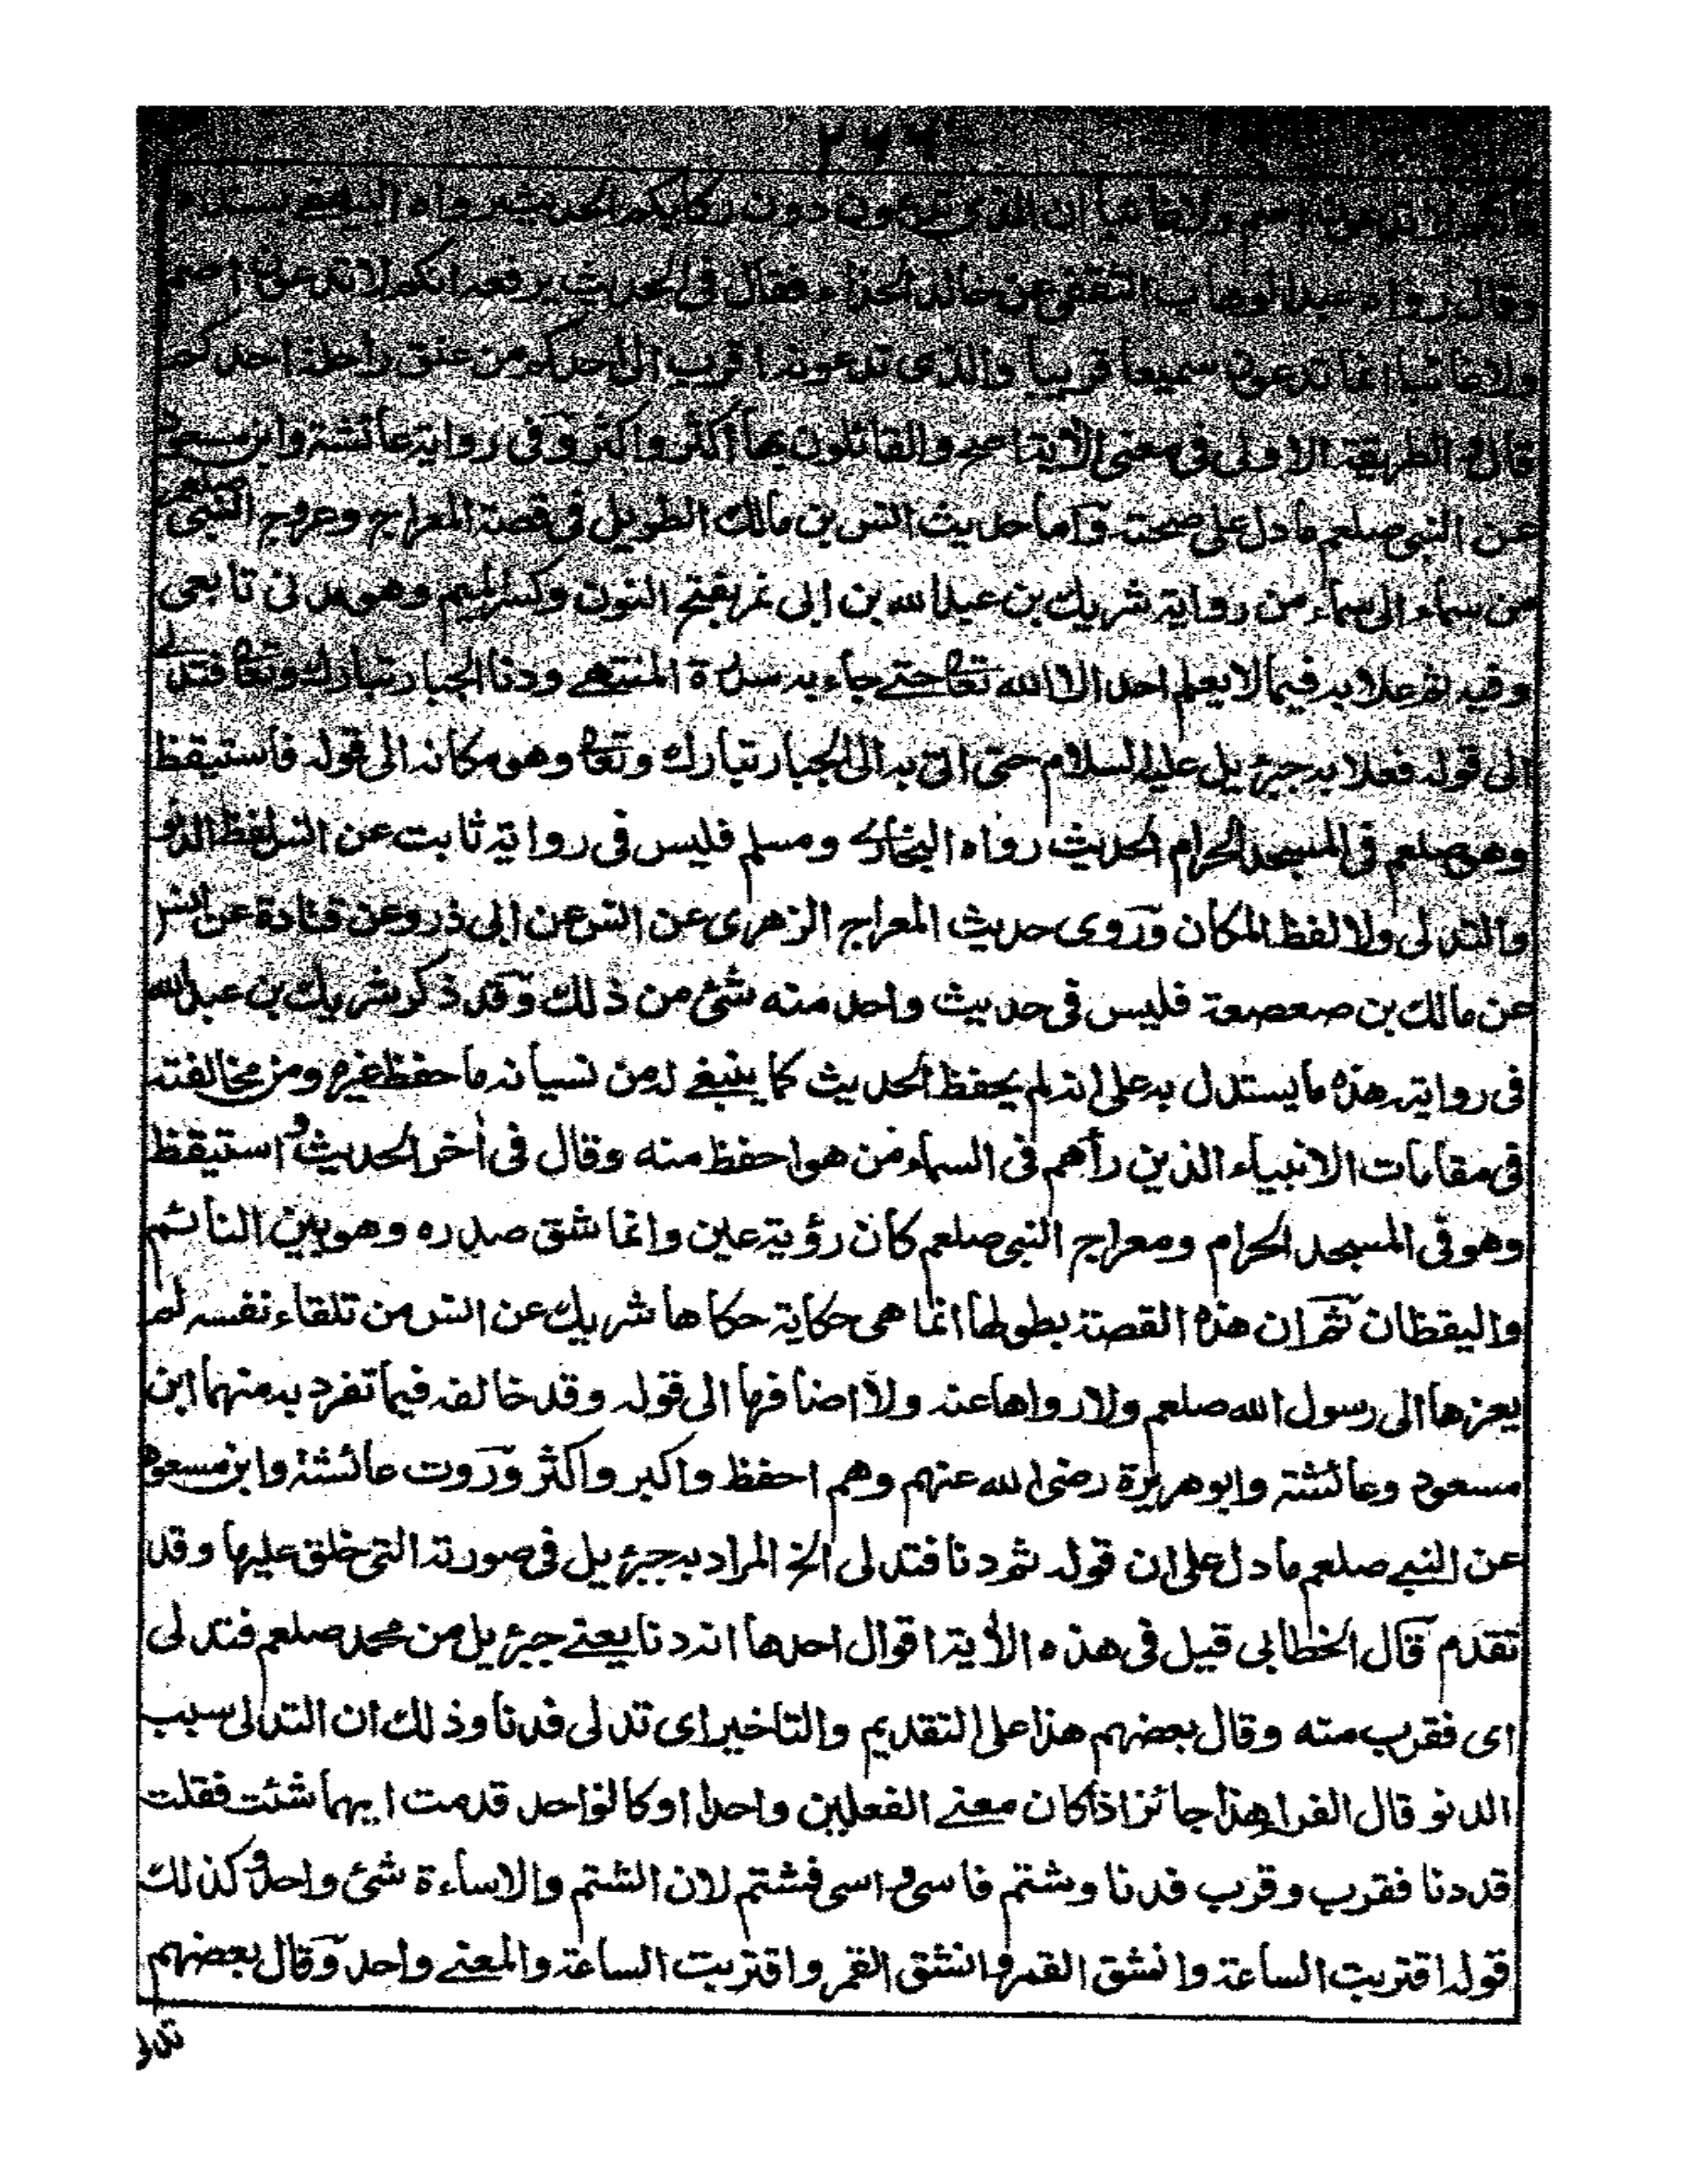 ٢٦٦
فانكم لا تدعون اصم ولا غائبا ان الذي تدعون دون ركابكم الحديث رواه البيهقي بسنده
وقال رواه عبد الوهاب الثقفي عن خالد الحذاء فقال في الحديث يرفعه انكم لا تدعون اصم
ولا غائبا انما تدعون سميعا قريبا والذي تدعونه اقرب الى احدكم من عنق راحلة احدكم
قال والطريقة الاولى في معنى الآية اصح والقائلون بها اكثر واكثر وفي رواية عائشة وابن مسعود
عن النبي صلعم ما دل على صحته وآما حديث انس بن مالك الطويل في قصة المعراج وعروج النبي صلعم
من سماء الى سماء من رواية شريك بن عبد الله بن ابي نمر بفتح النون وكسر الميم وهو مدني تابعي
وفيه ثم علا به فيما لا يعلم احد الا الله تعا حتے جاء به سدرة المنتهے ودنا الجبار تبارك وتعا فتدلى
الى قوله فعلا به جبرئيل عليه السلام حتى اتى به الى الجبار تبارك وتعا وهو مكانه الى قوله فاستيقظ
وهو صلعم في المسجد الحرام الحديث رواه البخاري ومسلم فليس في رواية ثابت عن انس لفظ الدنو
والتدلي ولا لفظ المكان وروى حديث المعراج الزهري عن انس عن ابي ذر وعن قتادة عن انس
عن مالك بن صعصعة فليس في حديث واحد منه شئ من ذلك وقد ذكر شريك بن عبد الله
في روايته هذه ما يستدل به على انه لم يحفظ الحديث كما ينبغے له من نسيانه ما حفظ غيره ومن مخالفته
في مقامات الانبياء الذين رأهم في السماء من هو احفظ منه وقال في أخر الحديث واستيقظ
وهو في المسجد الحرام ومعراج النبي صلعم كان رؤية عين وانما شق صدره وهو بين النائم
واليقظان ثم ان هذه القصة بطولها انما هي حكاية حكاها شريك عن انس من تلقاء نفسه لم
يعزها الى رسول الله صلعم ولا رواها عنه ولا اضافها الى قوله وقد خالفه فيما تفرد به منهما ابن
مسعود وعائشة وابو هريرة رضي الله عنهم وهم احفظ واكبر واكثر وروت عائشة وابن مسعود
عن النبے صلعم ما دل على ان قوله ثم دنا فتدلى الخ المراد به جبرئيل في صورته التي خلق عليها وقد
تقدم قال الخطابي قيل في هذه الأية اقوال احدها انه دنا يعنے جبرئيل من محمد صلعم فتدلى
اى فقرب منه وقال بعضهم هذا على التقديم والتاخير اى تدلى فدنا وذلك ان التدلي سبب
الدنو قال الفرا هذا جائز اذا كان معنے الفعلين واحدا او كالواحد قدمت ايهما شئت فقلت
قد دنا فقرب وقرب فدنا وشتم فاسى واسى فشتم لان الشتم والاساءة شئ واحد وكذلك
قوله اقتربت الساعة وانشق القمر وانشق القمر واقتربت الساعة والمعنے واحد وقال بعضهم
تدلى